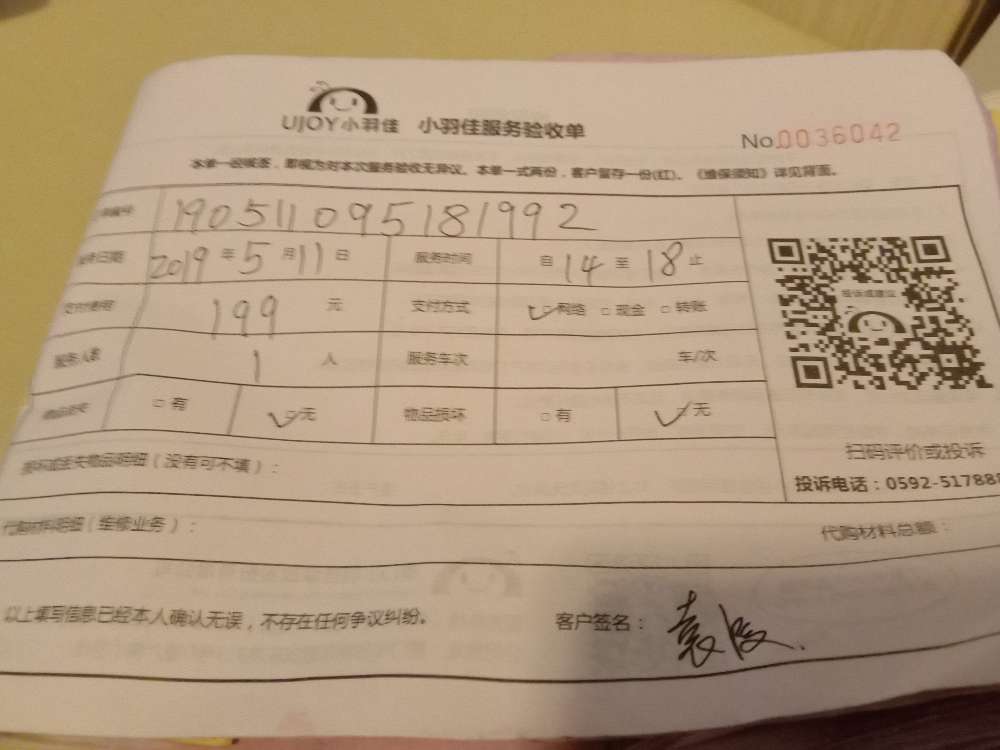 UJOY小羽佳 小羽佳服务验收单
No.0036042
本单一经签签，即视为对本次服务验收无异议。本单一式两份，客户留存一份(红)。《维保须知》详见背面。
编号 190511095181992
日期 2019年5月11日 服务时间 自14至18止
支付费用 199元 支付方式 ✓□网络 □现金 □转账
服务人数 1人 服务车次 车/次
物品丢失 □有 ✓□无 物品损坏 □有 ✓□无
投诉或建议
扫码评价或投诉
投诉电话：0592-517888
损坏或丢失物品明细（没有可不填）：
代购材料明细（维修业务）： 代购材料总额：
以上填写信息已经本人确认无误，不存在任何争议纠纷。 客户签名：